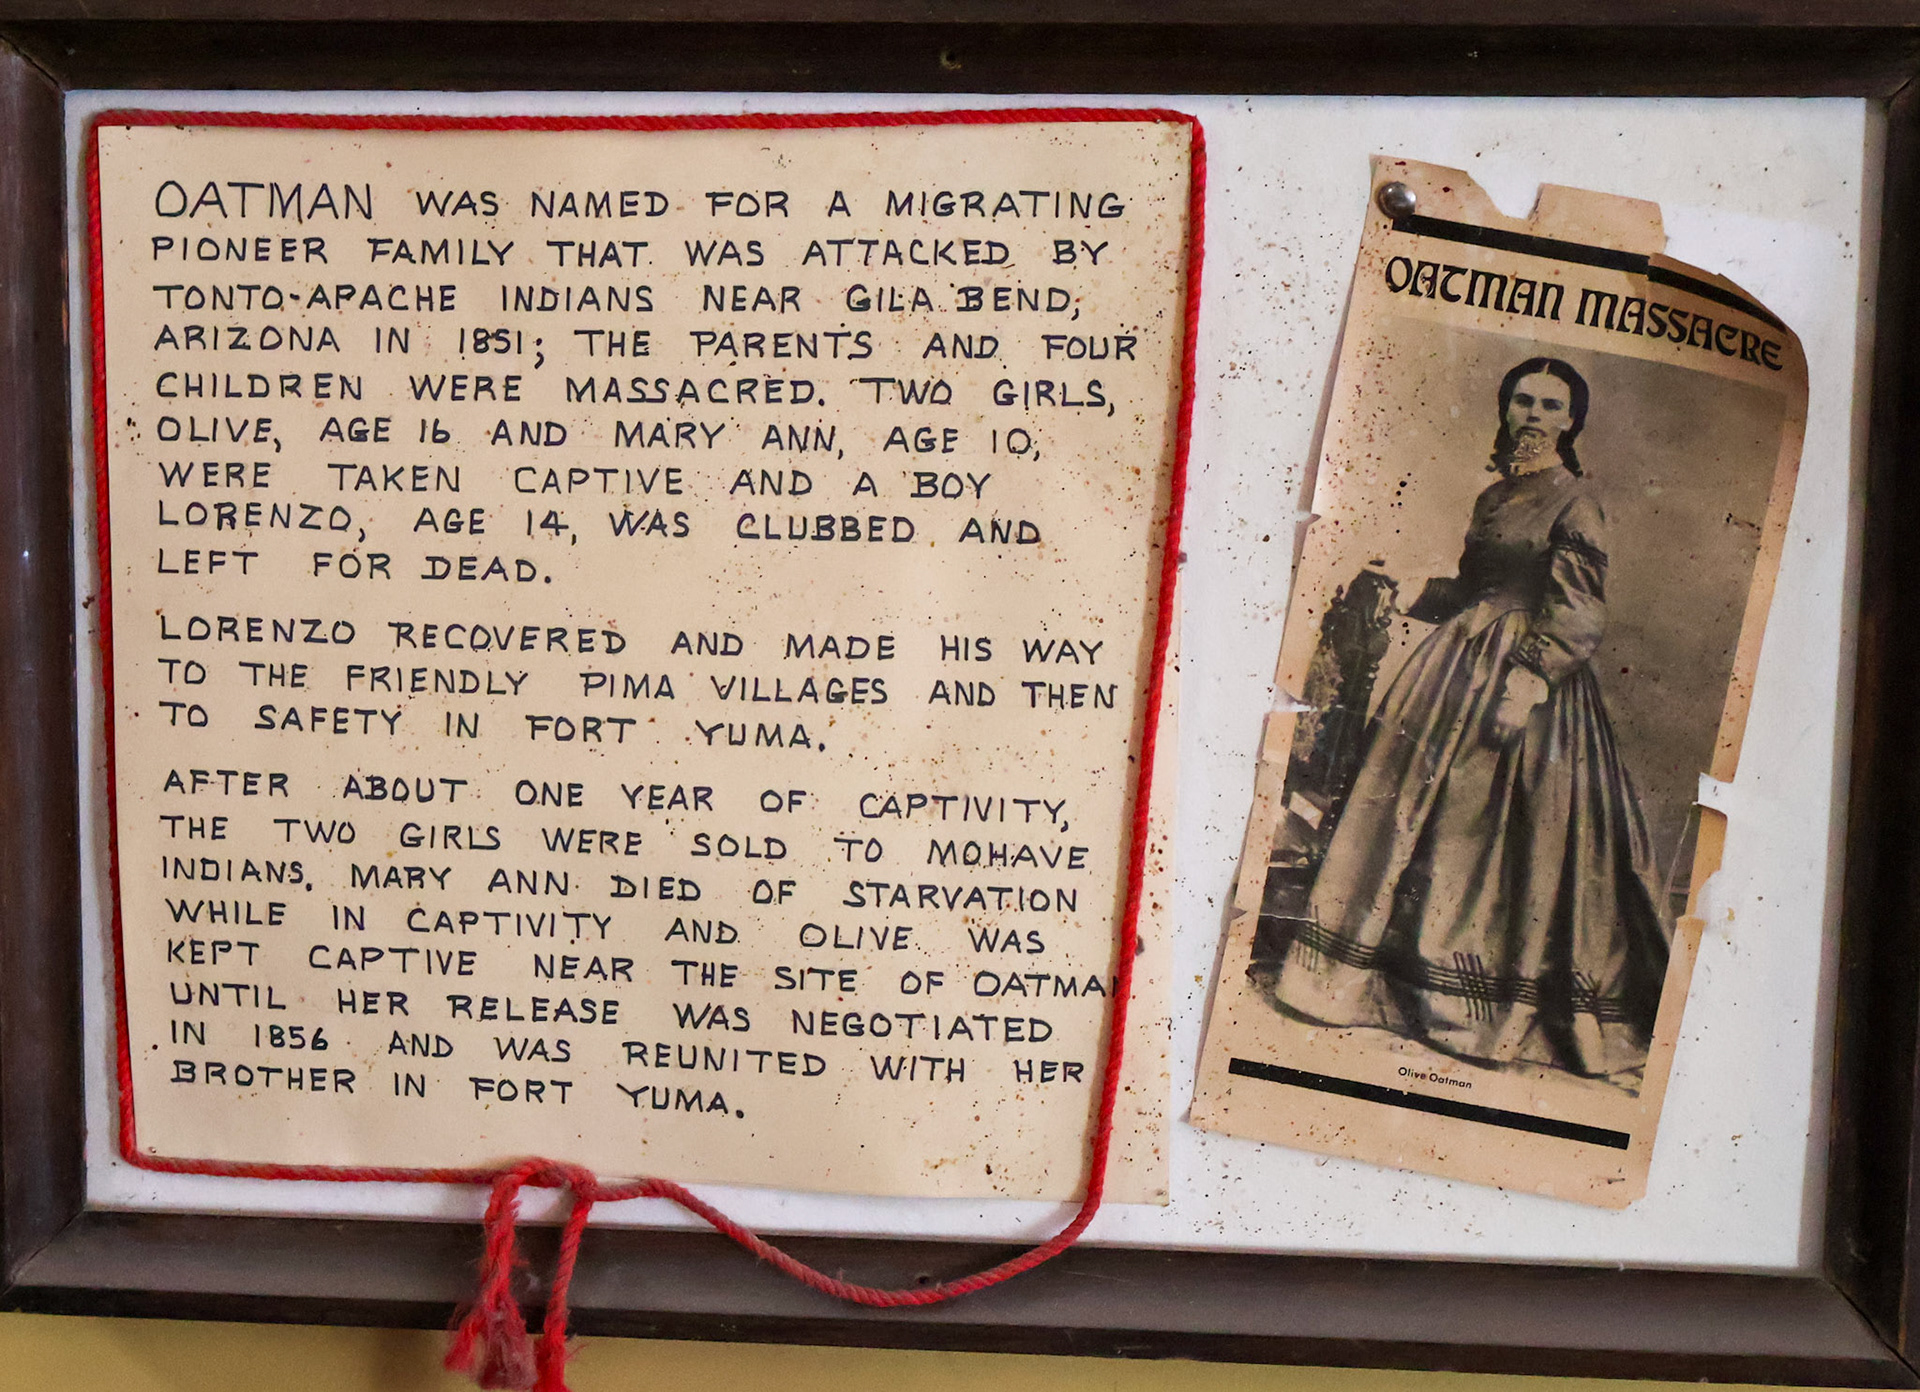 OATMAN WAS NAMED FOR A MIGRATING
PIONEER FAMILY THAT WAS ATTACKED BY
TONTO-APACHE INDIANS NEAR GILA BEND,
ARIZONA IN 1851; THE PARENTS AND FOUR
CHILDREN WERE MASSACRED. TWO GIRLS,
OLIVE, AGE 16 AND MARY ANN, AGE 10,
WERE TAKEN CAPTIVE AND A BOY
LORENZO, AGE 14, WAS CLUBBED AND
LEFT FOR DEAD.
LORENZO RECOVERED AND MADE HIS WAY
TO THE FRIENDLY PIMA VILLAGES AND THEN
TO SAFETY IN FORT YUMA.
AFTER ABOUT ONE YEAR OF CAPTIVITY,
THE TWO GIRLS WERE SOLD TO MOHAVE
INDIANS. MARY ANN DIED OF STARVATION
WHILE IN CAPTIVITY AND OLIVE WAS
KEPT CAPTIVE NEAR THE SITE OF OATMAN
UNTIL HER RELEASE WAS NEGOTIATED
IN 1856 AND WAS REUNITED WITH HER
BROTHER IN FORT YUMA.
OATMAN MASSACRE
Olive Oatman